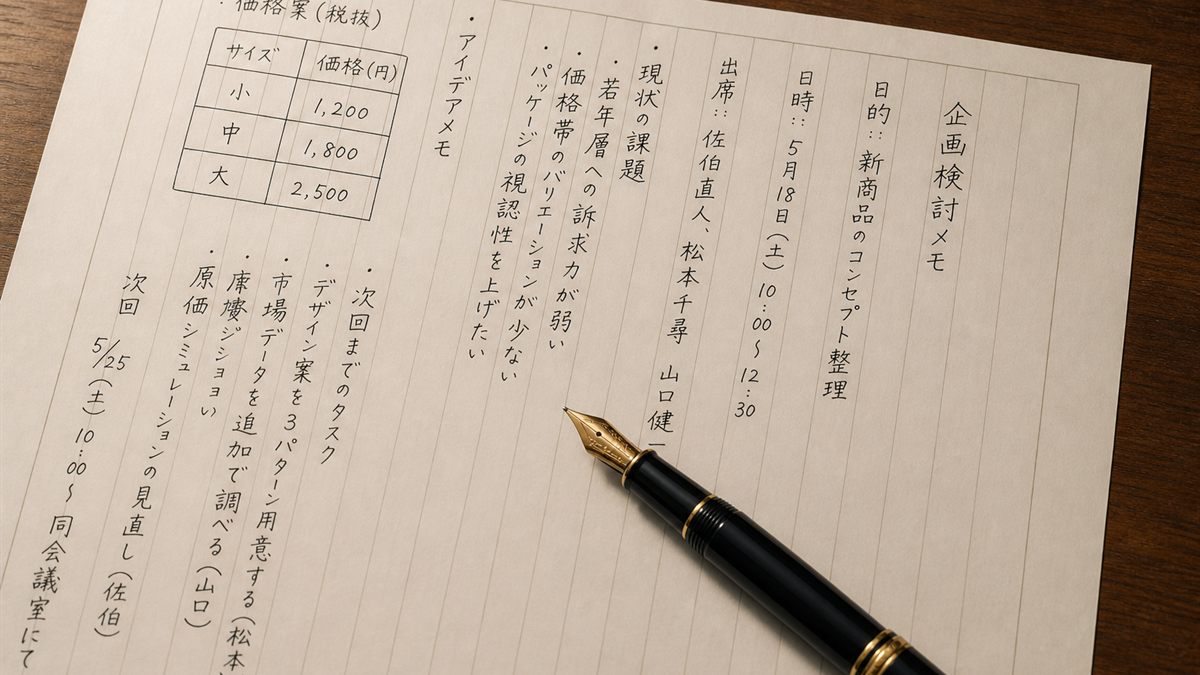 企画検討メモ
目的：新商品のコンセプト整理
日時：5月18日（土）10:00〜12:30
出席：佐伯直人、松本千尋 山口健一
・現状の課題
・若年層への訴求力が弱い
・価格帯のバリエーションが少ない
・パッケージの視認性を上げたい
・アイデアメモ
・価格案(税抜)
サイズ 価格(円)
小 1,200
中 1,800
大 2,500
・次回までのタスク
・デザイン案を3パターン用意する（松本
・市場データを追加で調べる（山口）
・原価シミュレーションの見直し（佐伯）
次回 5/25（土）10:00〜同会議室にて